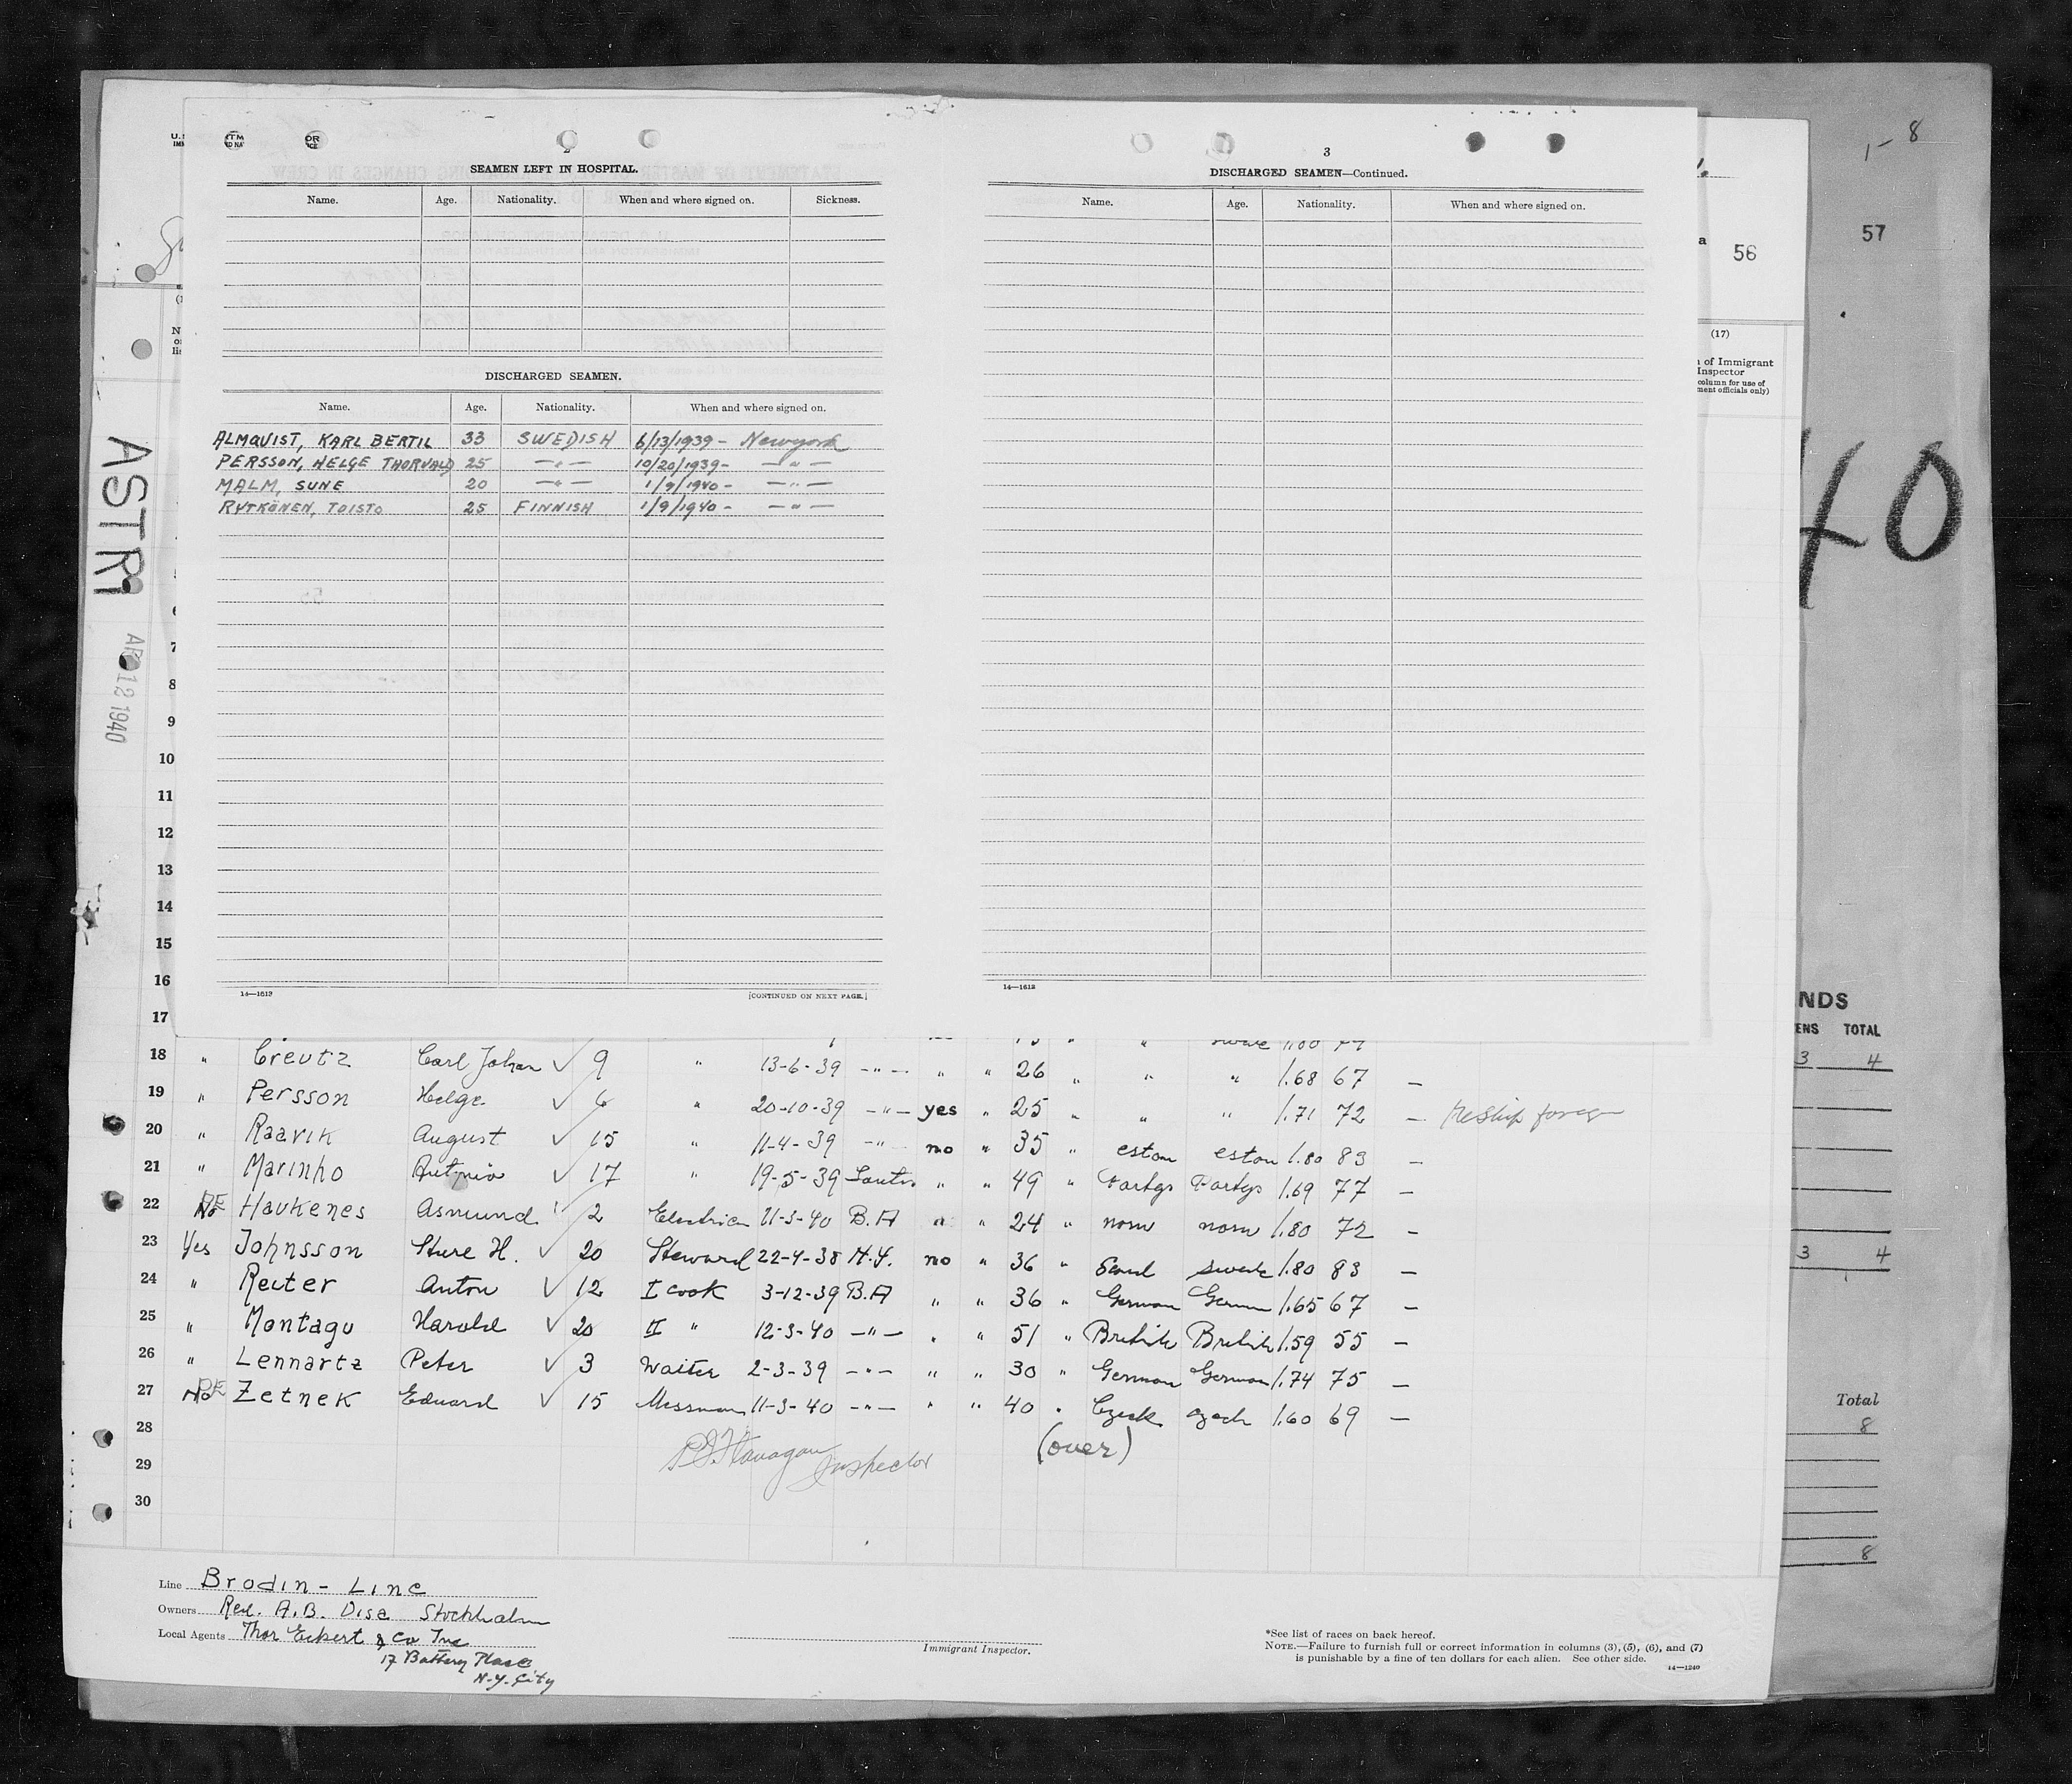 SEAMEN LEFT IN HOSPITAL.
Name. Age. Nationality. When and where signed on. Sickness.
DISCHARGED SEAMEN.
Name. Age. Nationality. When and where signed on.
ALMQUIST, KARL BERTIL 33 SWEDISH 6/13/1939 - Newyork
PERSSON, HELGE THORVALD 25 — " — 10/20/1939 - — " —
MALM, SUNE 20 — " — 1/9/1940 - — " —
RYTKÖNEN, TOISTO 25 FINNISH 1/9/1940 - — " —
14—1613 [CONTINUED ON NEXT PAGE.]
3
DISCHARGED SEAMEN—Continued.
Name. Age. Nationality. When and where signed on.
14—1613
1-8
57
56
(17)
of Immigrant
Inspector
column for use of
ment officials only)
40
ASTRI
APR 12 1940
7
8
9
10
11
12
13
14
15
16
17
18 " Creutz Carl Johan ✓ 9 " 13-6-39 -"- " " 26 " " " 1.68 67 —
19 " Persson Helge ✓ 6 " 20-10-39 -"- yes " 25 " " " 1.71 72 — reship foreign
20 " Raavik August ✓ 15 " 11-4-39 -"- no " 35 " eston eston 1.80 83 —
21 " Marinho Antonio ✓ 17 " 19-5-39 Santos " " 49 " Portgs Portgs 1.69 77 —
22 No Haukenes Asmund ✓ 2 Electrician 11-3-40 B.A " " 24 " norw norw 1.80 72 —
23 Yes Johnsson Sture H. ✓ 20 Steward 22-4-38 N.Y. no " 36 " Scand swede 1.80 83 —
24 " Reiter Anton ✓ 12 I cook 3-12-39 B.A " " 36 " German German 1.65 67 —
25 " Montagu Harold ✓ 20 II " 12-3-40 -"- " " 51 " British British 1.59 55 —
26 " Lennartz Peter ✓ 3 Waiter 2-3-39 -"- " " 30 " German German 1.74 75 —
27 No Zetnek Eduard ✓ 15 Messman 11-3-40 -"- " " 40 " Czech czech 1.60 69 —
28 (over)
29 Flanagan Inspector
30
Line Brodin - Line
Owners Red. A.B. Disa Stockholm
Local Agents Thor Eckert & Co Inc
17 Battery Place
N.Y. City
Immigrant Inspector.
*See list of races on back hereof.
NOTE.—Failure to furnish full or correct information in columns (3), (5), (6), and (7)
is punishable by a fine of ten dollars for each alien. See other side.
14—1240
NDS
ENS TOTAL
3 4
3 4
Total
8
8